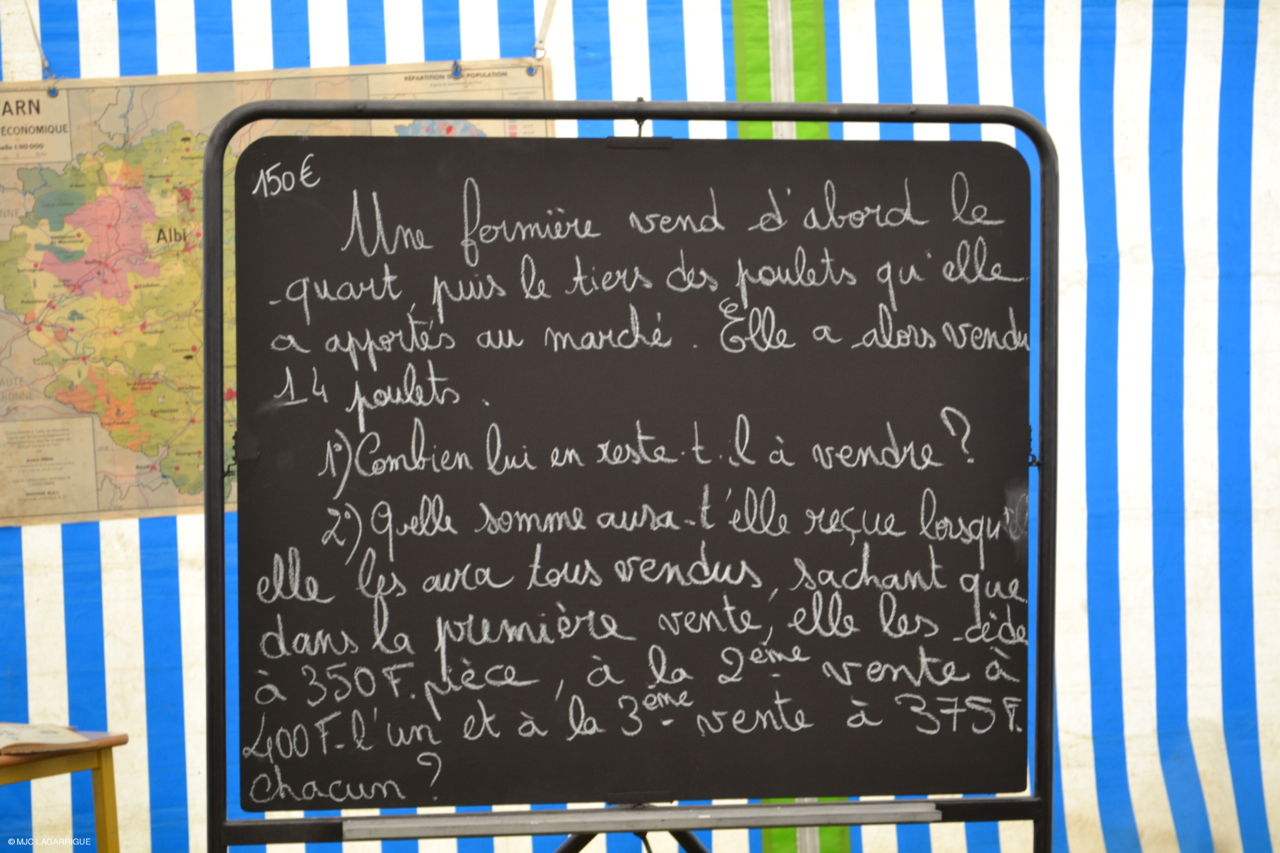 ARN
ÉCONOMIQUE
RÉPARTITION DE LA POPULATION
Albi
150€
Une fermière vend d'abord le
quart, puis le tiers des poulets qu'elle
a apportés au marché. Elle a alors vendu
14 poulets.
1°) Combien lui en reste-t-il à vendre ?
2°) Quelle somme aura-t'elle reçue lorsqu'
elle les aura tous vendus, sachant que
dans la première vente, elle les cède
à 350F. pièce, à la 2ème vente à
400F. l'un et à la 3ème vente à 375F.
chacun ?
© MJC LAGARRIGUE